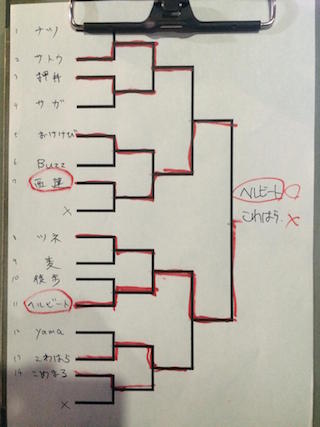 1 ナツ
2 サトウ
3 押井
4 サガ
5 おけけび
6 Buzz
7
×
8 ツネ
9 麦
10
11 ヘルビート
12 yama
13 こわはら
14 こめまる
×
ヘルビート ○
こわはら ×